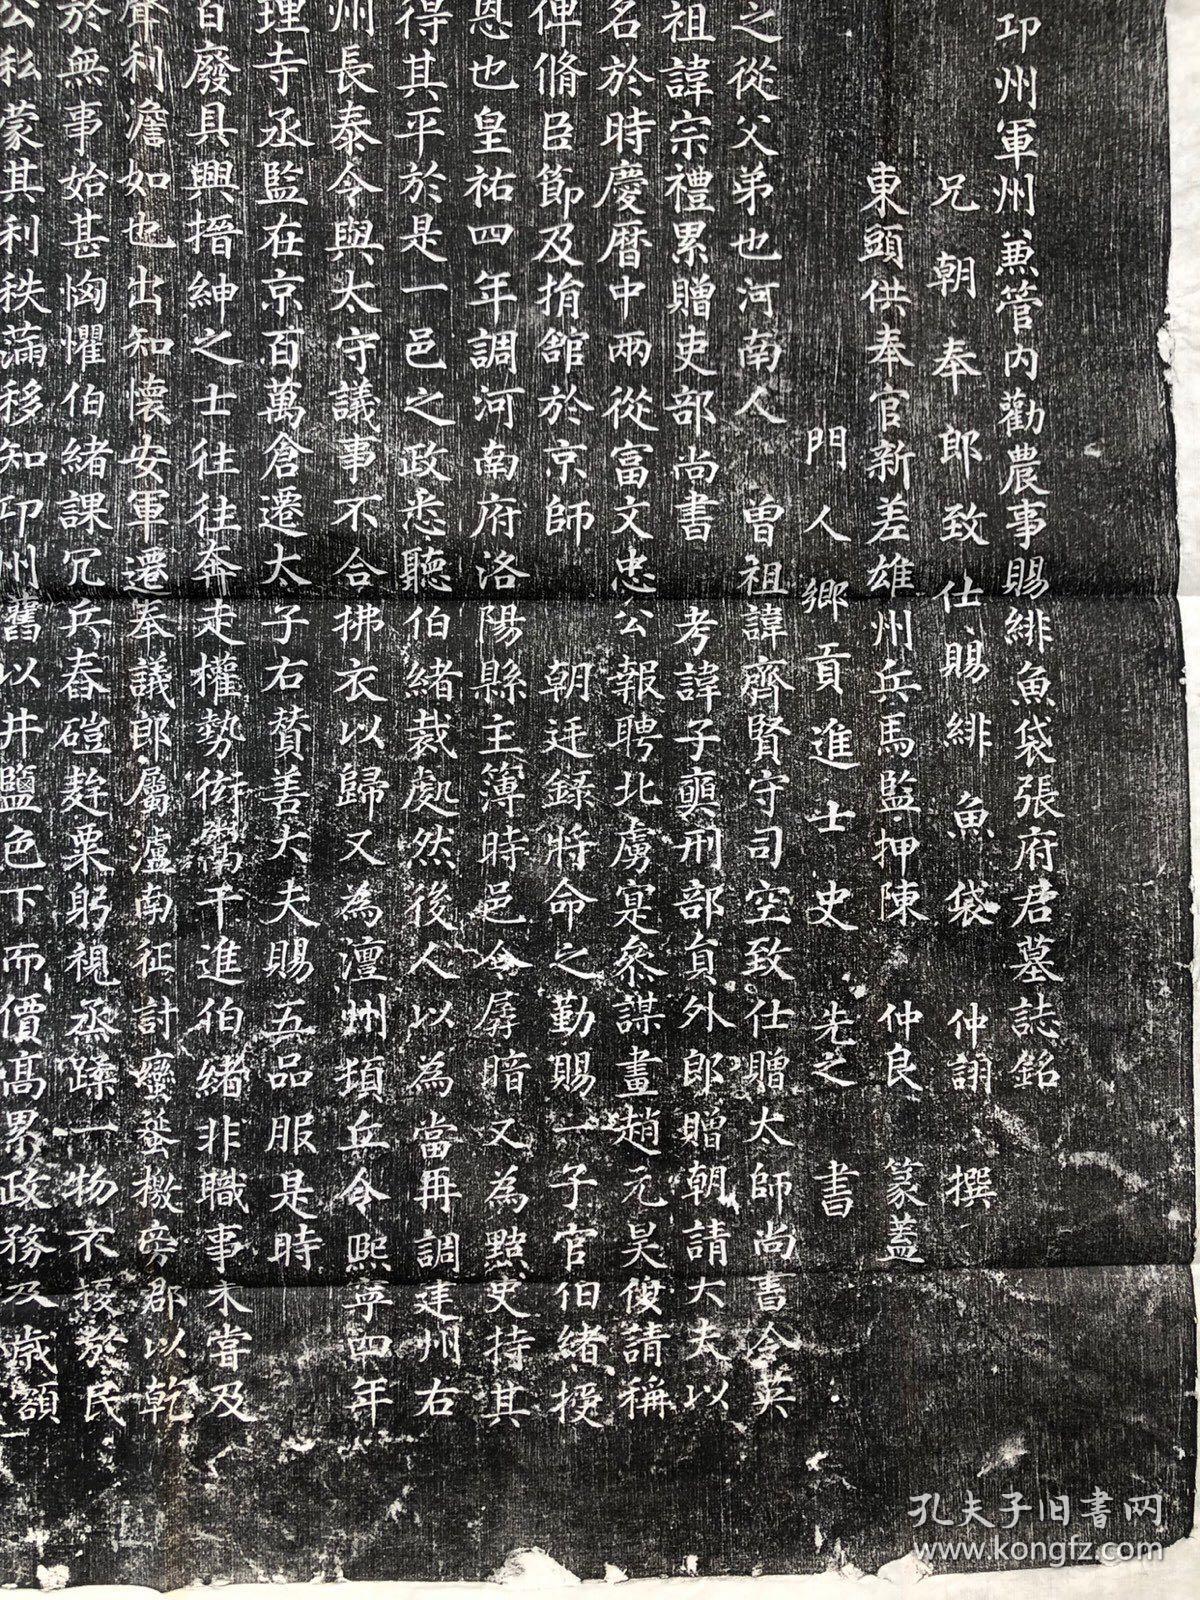 邛州軍州兼管內勸農事賜緋魚袋張府君墓誌銘
兄朝奉郎致仕賜緋魚袋 仲詡 撰
東頭供奉官新差雄州兵馬監押陳 仲良 篆蓋
門人鄉貢進士史 先之 書
之從父弟也河南人 曾祖諱齊賢守司空致仕贈太師尚書令英
祖諱宗禮累贈吏部尚書 考諱子奭刑部員外郎贈朝請大夫以
名於時慶曆中兩從富文忠公報聘北虜寔參謀畫趙元昊復請稱
俾脩臣節及捐舘於京師 朝廷錄將命之勤賜一子官伯緒授
恩也皇祐四年調河南府洛陽縣主簿時邑令孱暗又為黠吏持其
得其平於是一邑之政悉聽伯緒裁處然後人以為當再調建州右
州長泰令與太守議事不合拂衣以歸又為澶州頓丘令熙寧四年
理寺丞監在京百萬倉遷太子右贊善大夫賜五品服是時
百廢具興搢紳之士往往奔走權勢衒鬻干進伯緒非職事未嘗及
聲利澹如也出知懷安軍遷奉議郎屬瀘南征討蠻蜑檄旁郡以乾
於無事始甚恟懼伯緒課冗兵舂磑麰粟躬視烝蹂一物不擾於民
公私蒙其利秩滿移知邛州舊以井鹽色下而價高累政務及歲額
孔夫子旧书网
www.kongfz.com